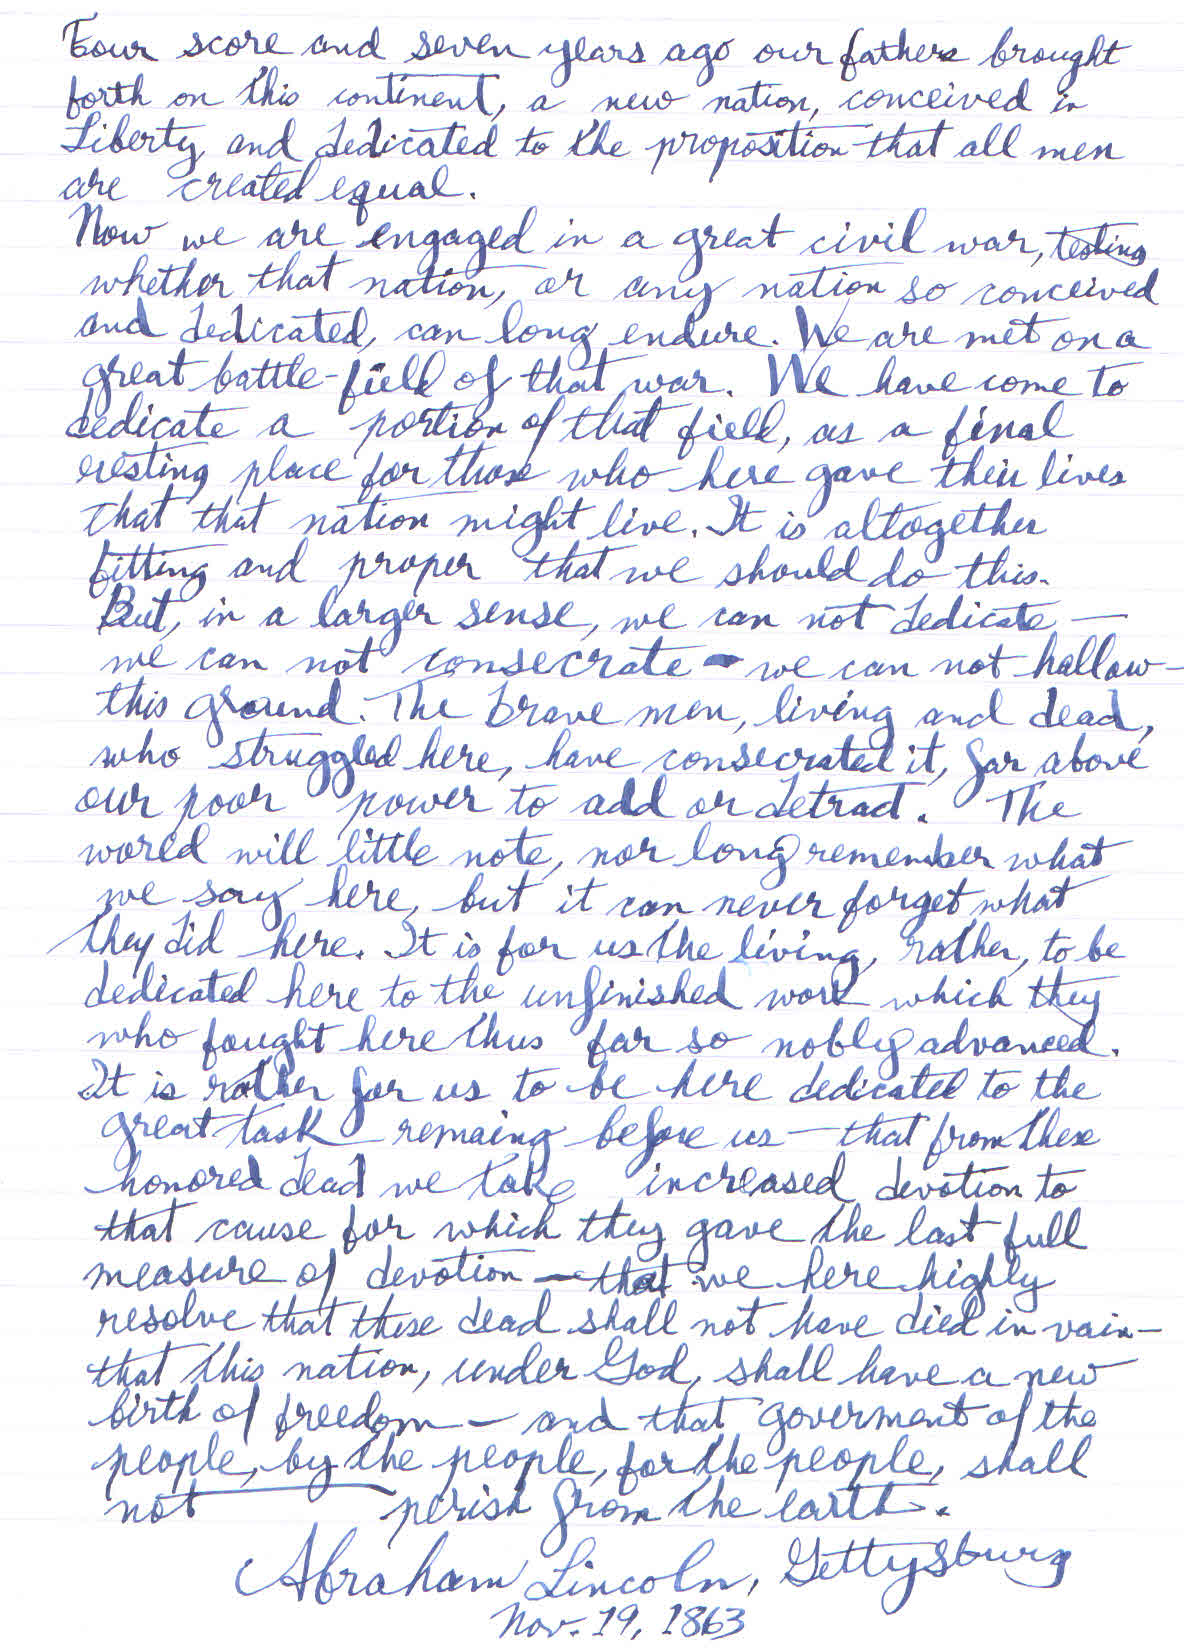 Four score and seven years ago our fathers brought
forth on this continent, a new nation, conceived in
Liberty, and dedicated to the proposition that all men
are created equal.
Now we are engaged in a great civil war, testing
whether that nation, or any nation so conceived
and dedicated, can long endure. We are met on a
great battle-field of that war. We have come to
dedicate a portion of that field, as a final
resting place for those who here gave their lives
that that nation might live. It is altogether
fitting and proper that we should do this.
But, in a larger sense, we can not dedicate —
we can not consecrate - we can not hallow -
this ground. The brave men, living and dead,
who struggled here, have consecrated it, far above
our poor power to add or detract. The
world will little note, nor long remember what
we say here, but it can never forget what
they did here. It is for us the living, rather, to be
dedicated here to the unfinished work which they
who fought here thus far so nobly advanced.
It is rather for us to be here dedicated to the
great task remaing before us — that from these
honored dead we take increased devotion to
that cause for which they gave the last full
measure of devotion — that we here highly
resolve that these dead shall not have died in vain -
that this nation, under God, shall have a new
birth of freedom — and that goverment of the
people, by the people, for the people, shall
not perish from the earth.
Abraham Lincoln, Gettysburg
Nov. 19, 1863